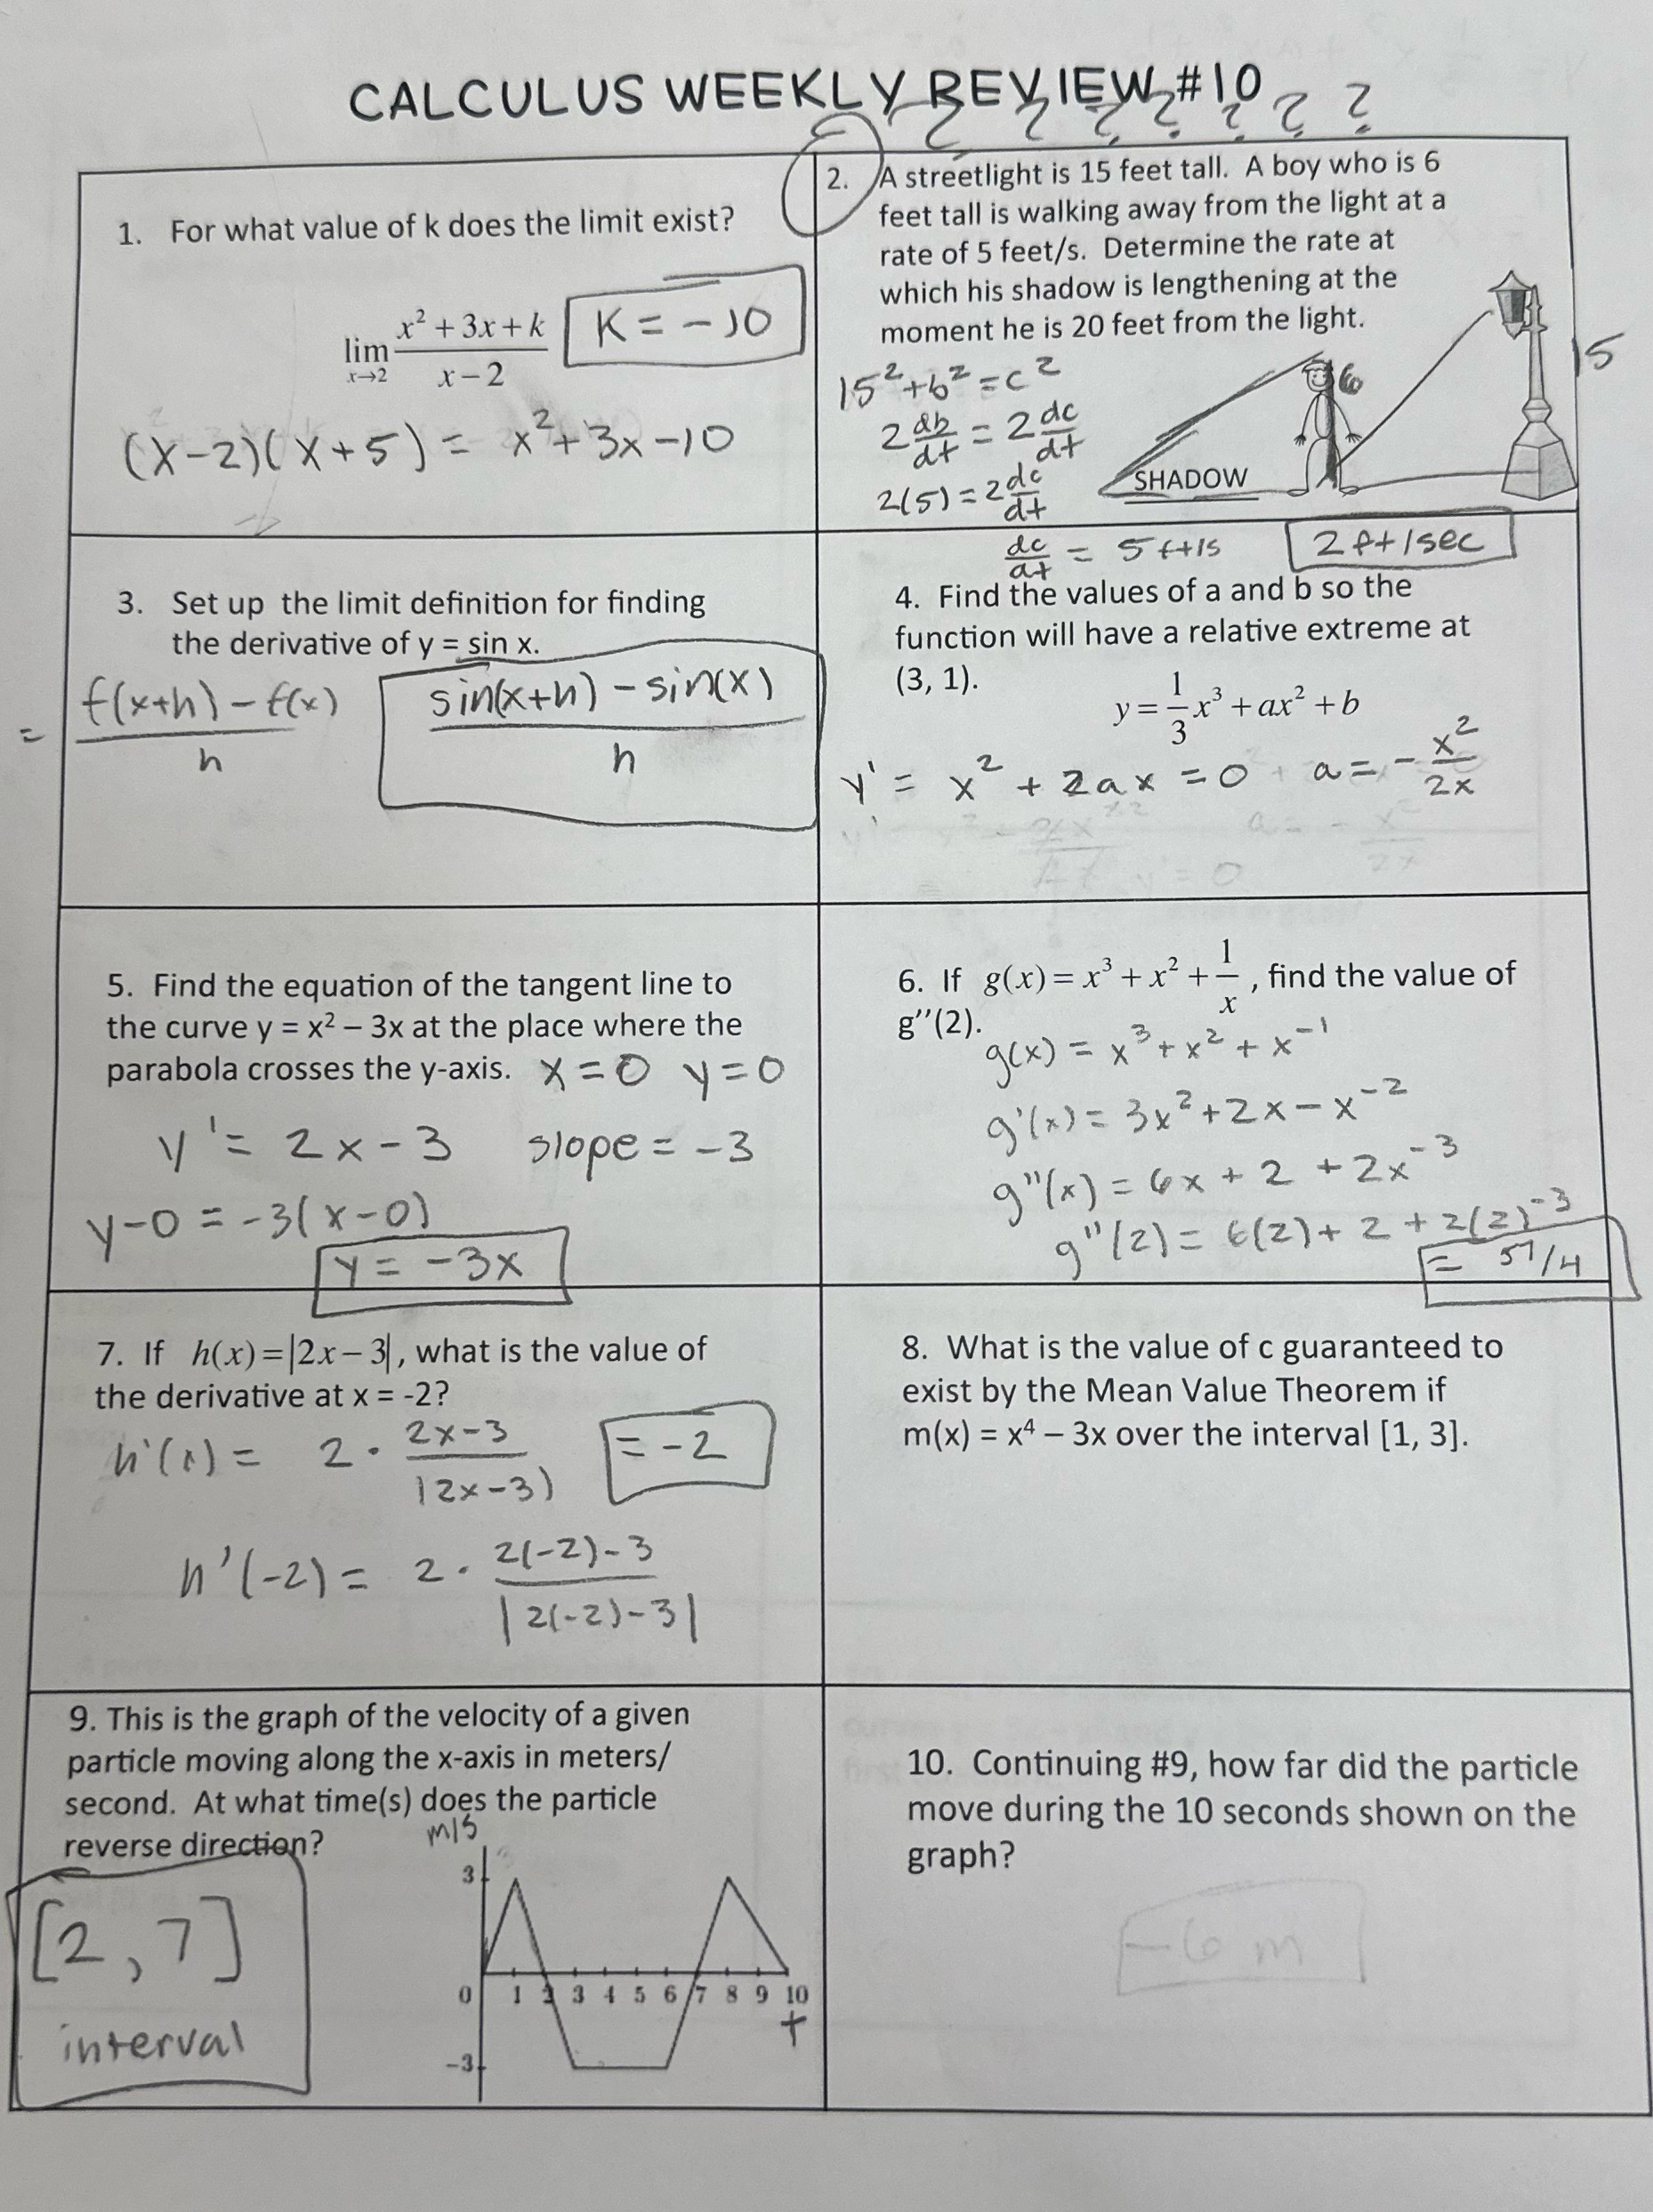 CALCULUS WEEKLY REVIEW #10
? ? ? ? ? ? ?
1. For what value of k does the limit exist?
lim x→2 (x² + 3x + k)/(x − 2)
K = -10
(x-2)(x+5) = x²+3x-10
2. A streetlight is 15 feet tall. A boy who is 6
feet tall is walking away from the light at a
rate of 5 feet/s. Determine the rate at
which his shadow is lengthening at the
moment he is 20 feet from the light.
15² + b² = c²
2 db/dt = 2 dc/dt
2(5) = 2 dc/dt
dc/dt = 5 ft/s
2 ft/sec
6
15
SHADOW
3. Set up the limit definition for finding
the derivative of y = sin x.
= (f(x+h) - f(x))/h
(sin(x+h) - sin(x))/h
4. Find the values of a and b so the
function will have a relative extreme at
(3, 1).
y = 1/3 x³ + ax² + b
y' = x² + 2ax = 0
a = - x²/2x
a = - x²/2x
y' = 0
5. Find the equation of the tangent line to
the curve y = x² – 3x at the place where the
parabola crosses the y-axis.
x = 0 y = 0
y' = 2x - 3 slope = -3
y-0 = -3(x-0)
y = -3x
6. If g(x) = x³ + x² + 1/x, find the value of
g''(2).
g(x) = x³ + x² + x⁻¹
g'(x) = 3x² + 2x - x⁻²
g"(x) = 6x + 2 + 2x⁻³
g"(2) = 6(2) + 2 + 2(2)⁻³
= 57/4
7. If h(x) = |2x − 3|, what is the value of
the derivative at x = -2?
h'(x) = 2 · (2x-3)/|2x-3|
= -2
h'(-2) = 2 · (2(-2)-3)/|2(-2)-3|
8. What is the value of c guaranteed to
exist by the Mean Value Theorem if
m(x) = x⁴ – 3x over the interval [1, 3].
9. This is the graph of the velocity of a given
particle moving along the x-axis in meters/
second. At what time(s) does the particle
reverse direction?
[2, 7]
interval
m/s
3
0 1 2 3 4 5 6 7 8 9 10
t
-3
10. Continuing #9, how far did the particle
move during the 10 seconds shown on the
graph?
-6 m